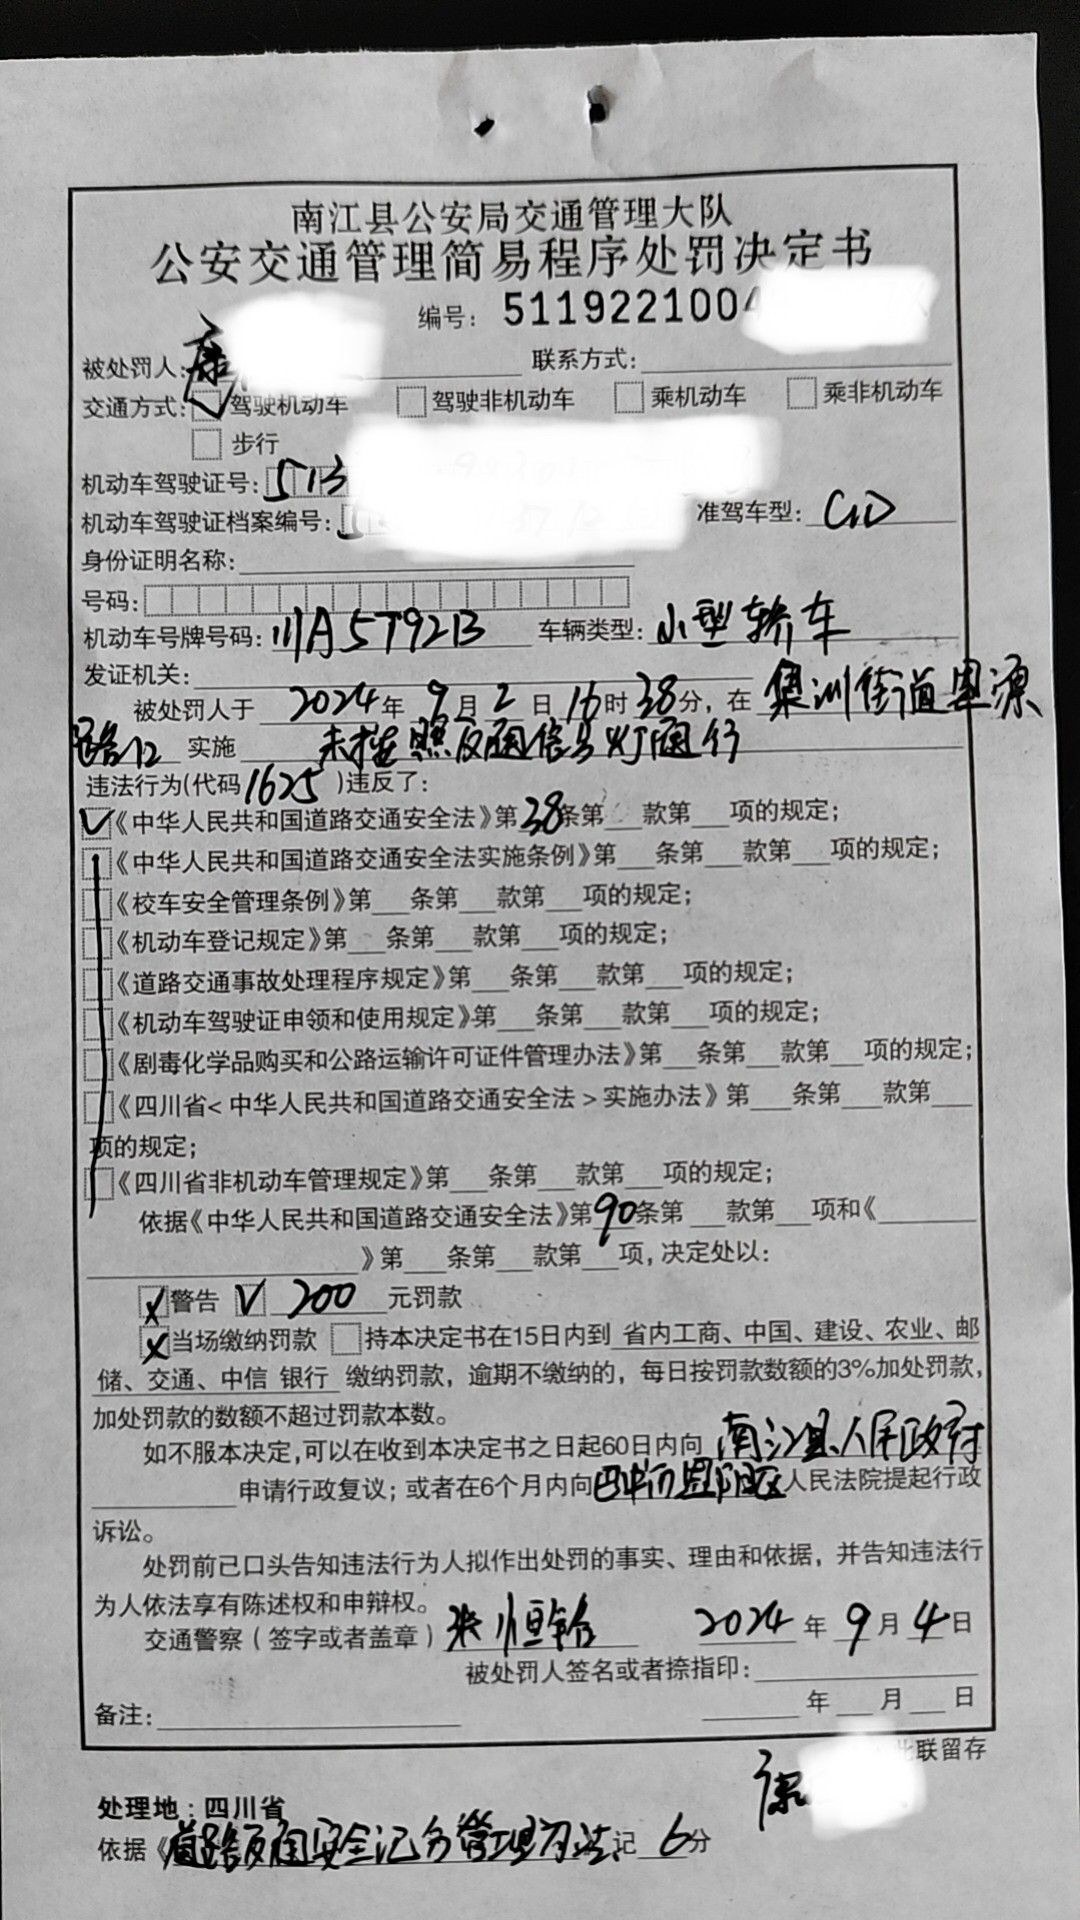 南江县公安局交通管理大队
公安交通管理简易程序处罚决定书
编号：511922100
被处罚人：康 联系方式：
交通方式： 驾驶机动车 驾驶非机动车 乘机动车 乘非机动车
步行
机动车驾驶证号：513
机动车驾驶证档案编号： 准驾车型：C1D
身份证明名称：
号码：
机动车号牌号码：川A5T92B 车辆类型：小型轿车
发证机关：
被处罚人于 2024年9月2日16时38分，在 集洲街道 源
路口 实施 未按照交通信号灯通行
违法行为(代码1625)违反了：
《中华人民共和国道路交通安全法》第38条第 款第 项的规定；
《中华人民共和国道路交通安全法实施条例》第 条第 款第 项的规定；
《校车安全管理条例》第 条第 款第 项的规定；
《机动车登记规定》第 条第 款第 项的规定；
《道路交通事故处理程序规定》第 条第 款第 项的规定；
《机动车驾驶证申领和使用规定》第 条第 款第 项的规定；
《剧毒化学品购买和公路运输许可证件管理办法》第 条第 款第 项的规定；
《四川省<中华人民共和国道路交通安全法>实施办法》第 条第 款第
项的规定；
《四川省非机动车管理规定》第 条第 款第 项的规定；
依据《中华人民共和国道路交通安全法》第90条第 款第 项和《
》第 条第 款第 项，决定处以：
警告 200 元罚款
当场缴纳罚款 持本决定书在15日内到 省内工商、中国、建设、农业、邮
储、交通、中信 银行 缴纳罚款，逾期不缴纳的，每日按罚款数额的3%加处罚款，
加处罚款的数额不超过罚款本数。
如不服本决定，可以在收到本决定书之日起60日内向 南江县人民政府
申请行政复议；或者在6个月内向巴中市恩阳区人民法院提起行政
诉讼。
处罚前已口头告知违法行为人拟作出处罚的事实、理由和依据，并告知违法行
为人依法享有陈述权和申辩权。
交通警察（签字或者盖章） 恒 2024年9月4日
被处罚人签名或者捺指印：
备注： 年 月 日
此联留存
康
处理地：四川省
依据《道路交通安全记分管理办法 记 6分